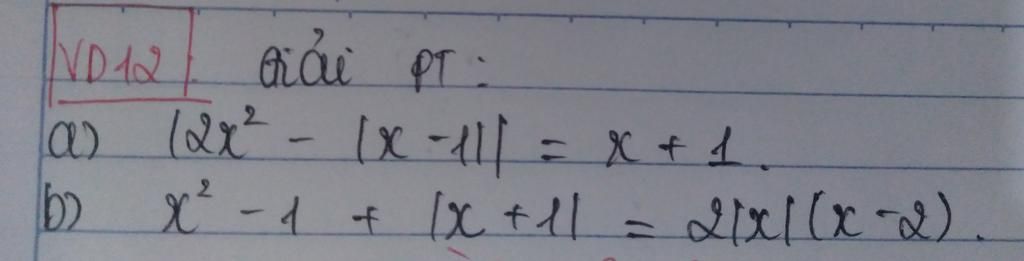 VD12. Giải PT:
a) |2x² - |x - 1|| = x + 1.
b) x² - 1 + |x + 1| = 2|x|(x - 2).